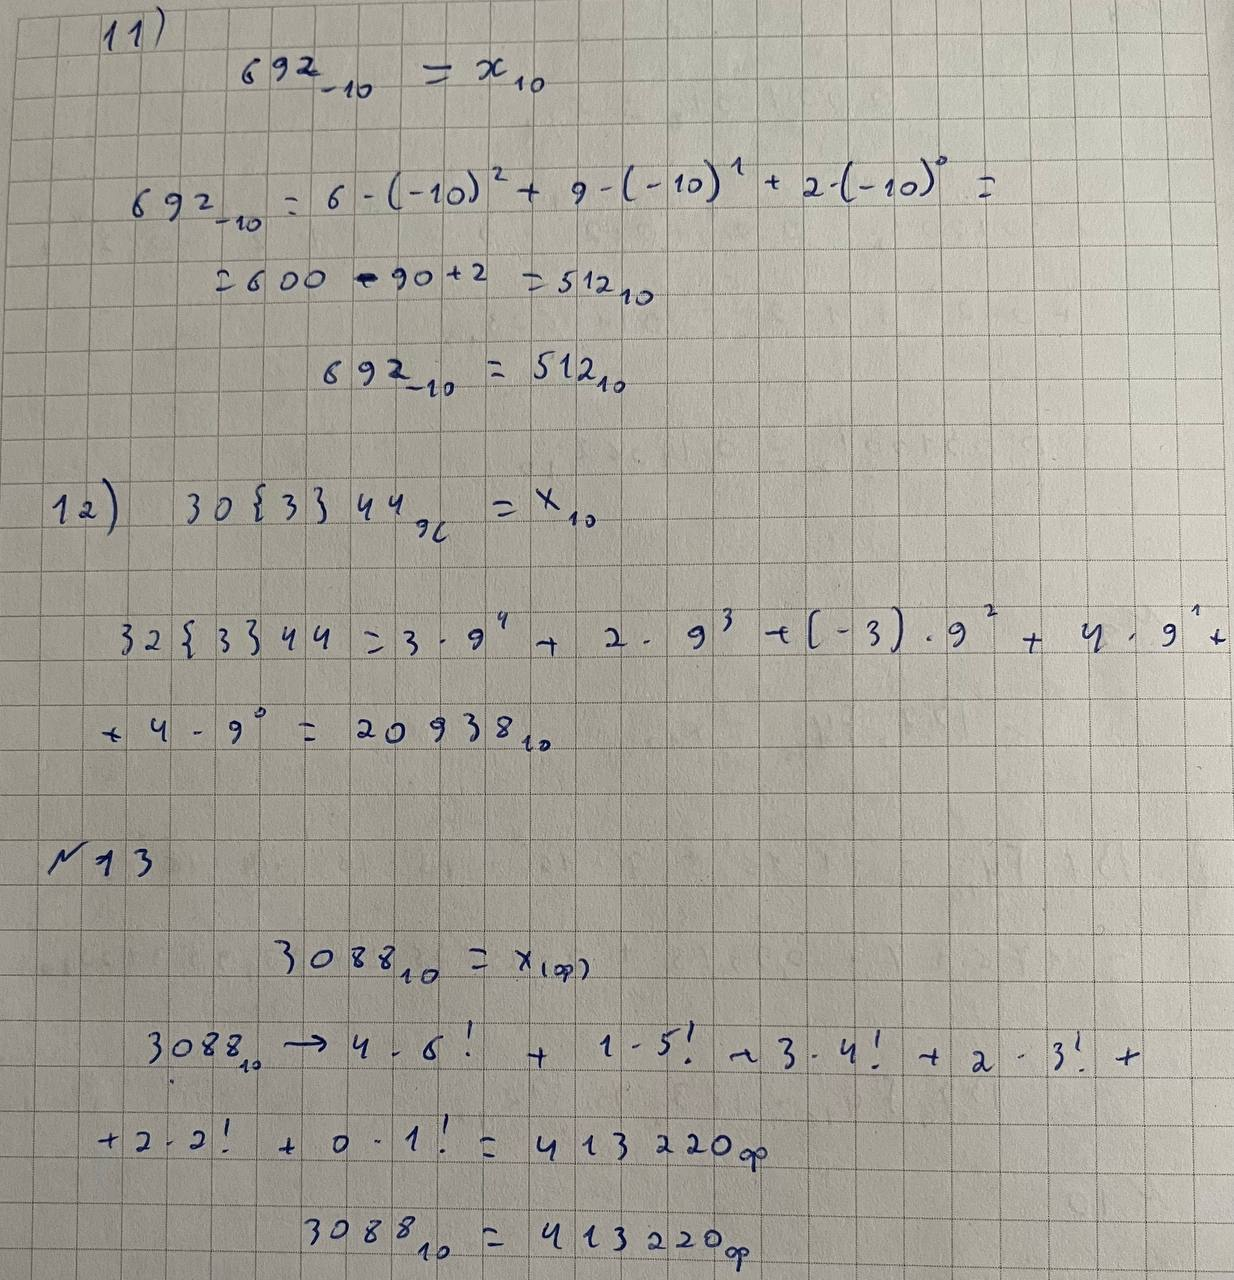 11)
692₋₁₀ = x₁₀
692₋₁₀ = 6 · (-10)² + 9 · (-10)¹ + 2 · (-10)⁰ =
= 600 - 90 + 2 = 512₁₀
692₋₁₀ = 512₁₀
12) 30{3}44₉c = x₁₀
32{3}44 = 3 · 9⁴ + 2 · 9³ + (-3) · 9² + 4 · 9¹ +
+ 4 · 9⁰ = 20938₁₀
N13
3088₁₀ = x(ф)
3088₁₀ → 4 · 6! + 1 · 5! + 3 · 4! + 2 · 3! +
+ 2 · 2! + 0 · 1! = 413220ф
3088₁₀ = 413220ф